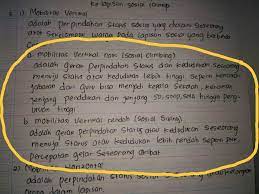 ke lapisan sosial lainnya
1) Mobilitas Vertikal
adalah perpindahan status sosial yang dialami seseorang
atau sekelompok warga pada lapisan sosial yang berbeda
a. mobilitas Vertikal naik (Social climbing)
adalah gerak perpindahan status dan kedudukan seseorang
menuju status atau kedudukan lebih tinggi seperti
dan guru bisa menjadi kepala sekolah, kenaikan
jenjang pendidikan dari jenjang SD, SMP, SMA hingga perg-
uruan tinggi
b. mobilitas Vertikal rendah (Social
adalah gerak perpindahan status atau kedudukan seseorang
menuju status atau kedudukan lebih rendah seperti
gelar seseorang akibat
2) Horizontal
adalah perpindahan status sosial seseorang
dalam lapisan